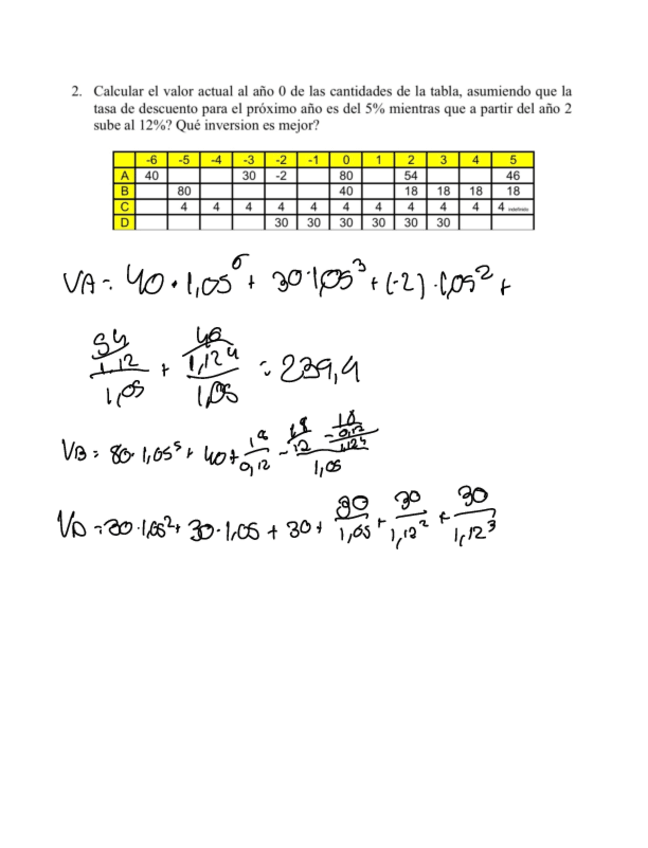 2. Calcular el valor actual al año 0 de las cantidades de la tabla, asumiendo que la
tasa de descuento para el próximo año es del 5% mientras que a partir del año 2
sube al 12%? Qué inversion es mejor?
-6 -5 -4 -3 -2 -1 0 1 2 3 4 5
A 40 30 -2 80 54 46
B 80 40 18 18 18 18
C 4 4 4 4 4 4 4 4 4 4 4
D 30 30 30 30 30 30
VA = 40 · 1,05^6 + 30·1,05^3 + (-2) · 1,05^2 +
54/1,12/1,05 + 46/1,12^4/1,05 = 239,4
VB = 80 · 1,05^5 + 40 +
VD = 30 · 1,05^2 + 30 · 1,05 + 30 + 30/1,05 + 30/1,12^2 + 30/1,12^3